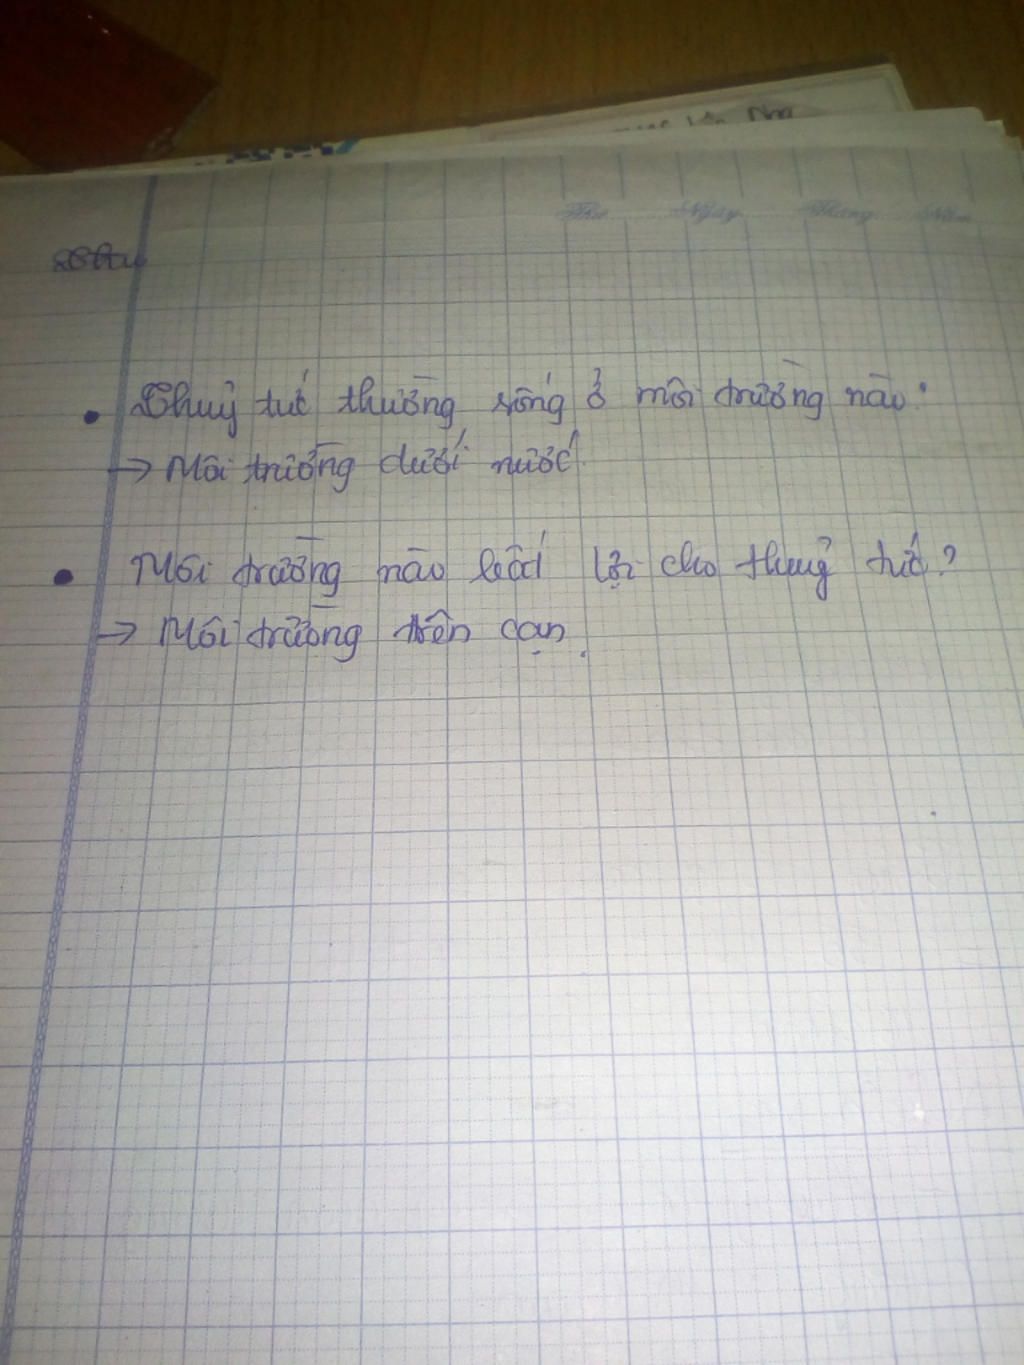 Thứ Ngày Tháng Năm
Thuỷ tức thường sống ở môi trường nào?
→ Môi trường dưới nước.
Môi trường nào bất lợi cho thuỷ tức?
→ Môi trường trên cạn.